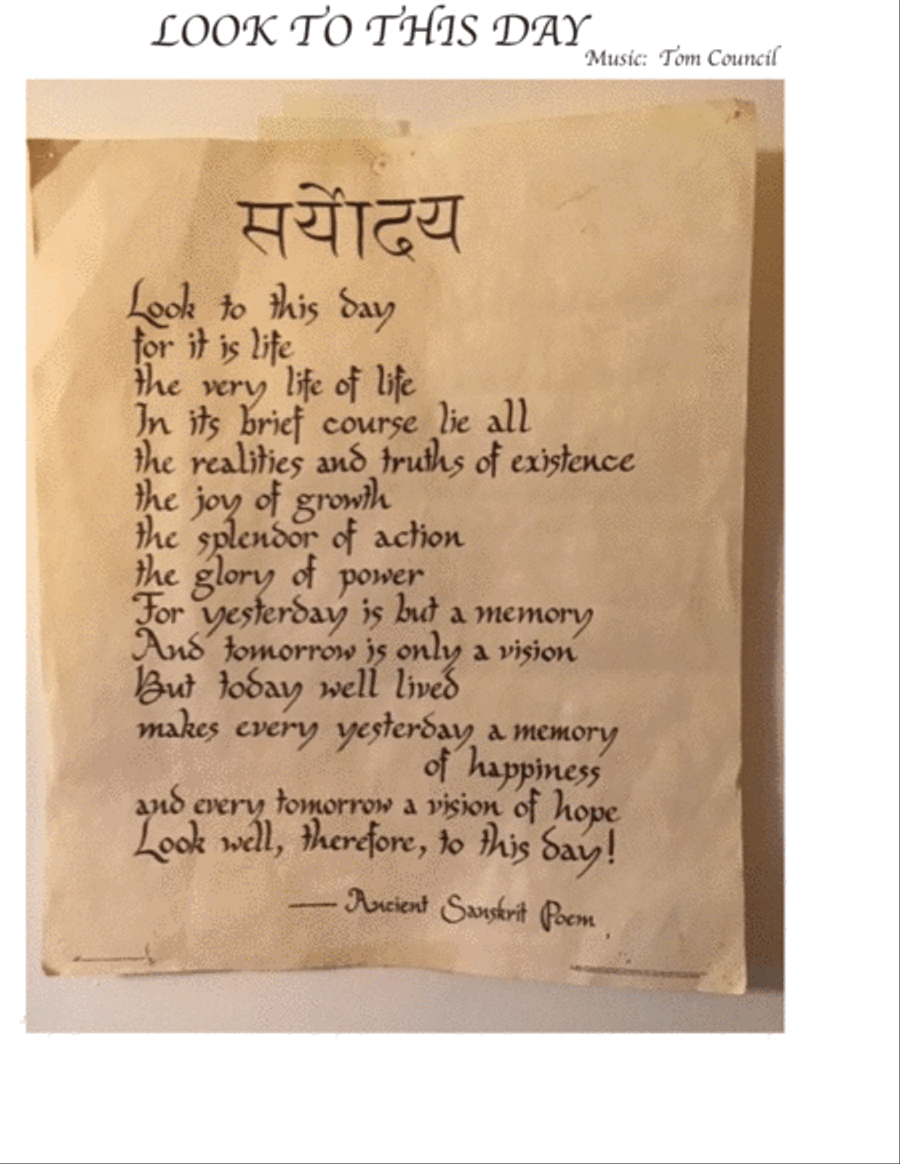 LOOK TO THIS DAY
Music: Tom Council
सर्योदय
Look to this day
for it is life
the very life of life
In its brief course lie all
the realities and truths of existence
the joy of growth
the splendor of action
the glory of power
For yesterday is but a memory
And tomorrow is only a vision
But today well lived
makes every yesterday a memory
of happiness
and every tomorrow a vision of hope
Look well, therefore, to this day!
— Ancient Sanskrit Poem